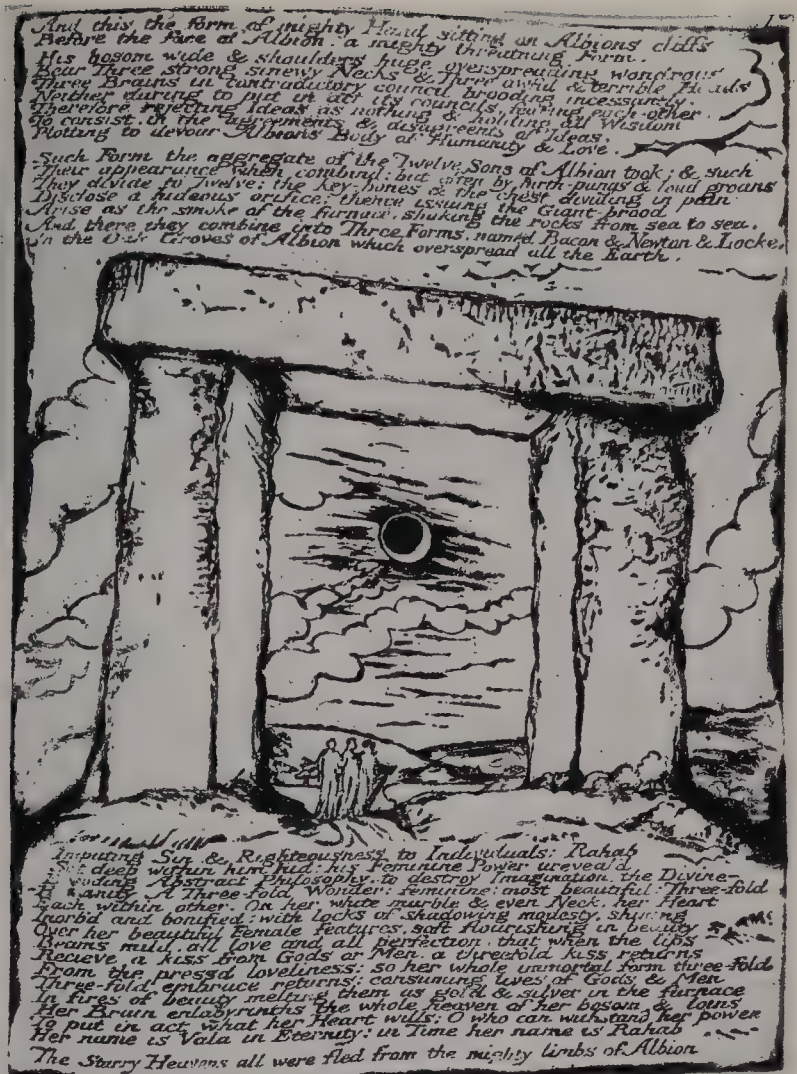 And this the form of mighty Hand sitting on Albions cliffs
Before the face of Albion, a mighty threatning Form.
His bosom wide & shoulders huge overspreading wondrous
Bear Three strong sinewy Necks & Three awful & terrible Heads
Three Brains in contradictory council brooding incessantly.
Neither daring to put in act its councils, fearing each-other,
Therefore rejecting Ideas as nothing & holding all Wisdom
To consist. in the agreements & disagreents of Ideas.
Plotting to devour Albions Body of Humanity & Love.
Such Form the aggregate of the Twelve Sons of Albion took; & such
Their appearance when combind: but often by birth-pangs & loud groans
They divide to Twelve: the key-bones & the chest dividing in pain
Disclose a hideous orifice; thence issuing the Giant-brood
Arise as the smoke of the furnace, shaking the rocks from sea to sea.
And there they combine into Three Forms, named Bacon & Newton & Locke,
In the Oak Groves of Albion which overspread all the Earth.
Imputing Sin & Righteousness to Individuals; Rahab
deep within him hid: his Feminine Power unreveal'd
Abstract Philosophy. to destroy Imagination, the Divine-
A Three-fold Wonder: feminine: most beautiful: Three-fold
Each within other. On her white marble & even Neck, her Heart
Inorb'd and bonified: with locks of shadowing modesty, shining
Over her beautiful Female features, soft flourishing in beauty
Beams mild, all love and all perfection, that when the lips
Recieve a kiss from Gods or Men, a threefold kiss returns
From the pressd loveliness: so her whole immortal form three-fold
Three-fold embrace returns: consuming lives of Gods & Men
In fires of beauty melting them as gold & silver in the furnace
Her Brain enlabyrinths the whole heaven of her bosom & loins
To put in act what her Heart wills; O who can withstand her power
Her name is Vala in Eternity: in Time her name is Rahab
The Starry Heavens all were fled from the mighty limbs of Albion